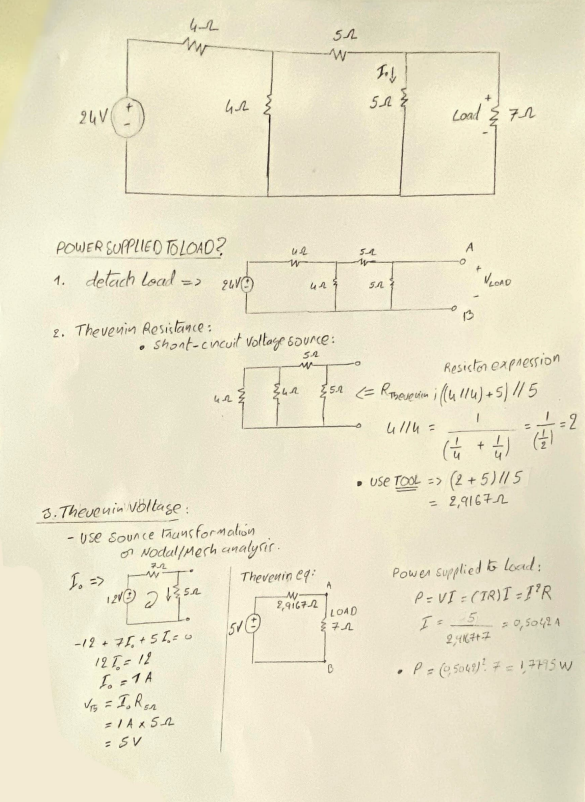 4Ω
5Ω
24V
+
-
4Ω
I₀↓
5Ω
Load
+
-
7Ω
POWER SUPPLIED TO LOAD?
1. detach Load =>
24V
4Ω
5Ω
4Ω
5Ω
A
+
VLOAD
-
B
2. Thevenin Resistance:
• short-circuit voltage source:
5Ω
4Ω
4Ω
5Ω
Resistor expression
<= RThevenin ; ((4//4)+5)//5
4//4 = 1/(1/4 + 1/4) = 1/(1/2) = 2
• USE TOOL => (2+5)//5
= 2,9167Ω
3. Thevenin Voltage:
- USE Source Transformation
or Nodal/Mesh analysis.
I₀ =>
7Ω
12V
5Ω
-12 + 7I₀ + 5I₀ = 0
12I₀ = 12
I₀ = 1A
VTh = I₀R5Ω
= 1A x 5Ω
= 5V
Thevenin eq:
A
2,9167Ω
5V
LOAD
7Ω
B
Power supplied to Load:
P = VI = (IR)I = I²R
I = 5/(2,9167+7) = 0,5042A
• P = (0,5042)². 7 = 1,7795W